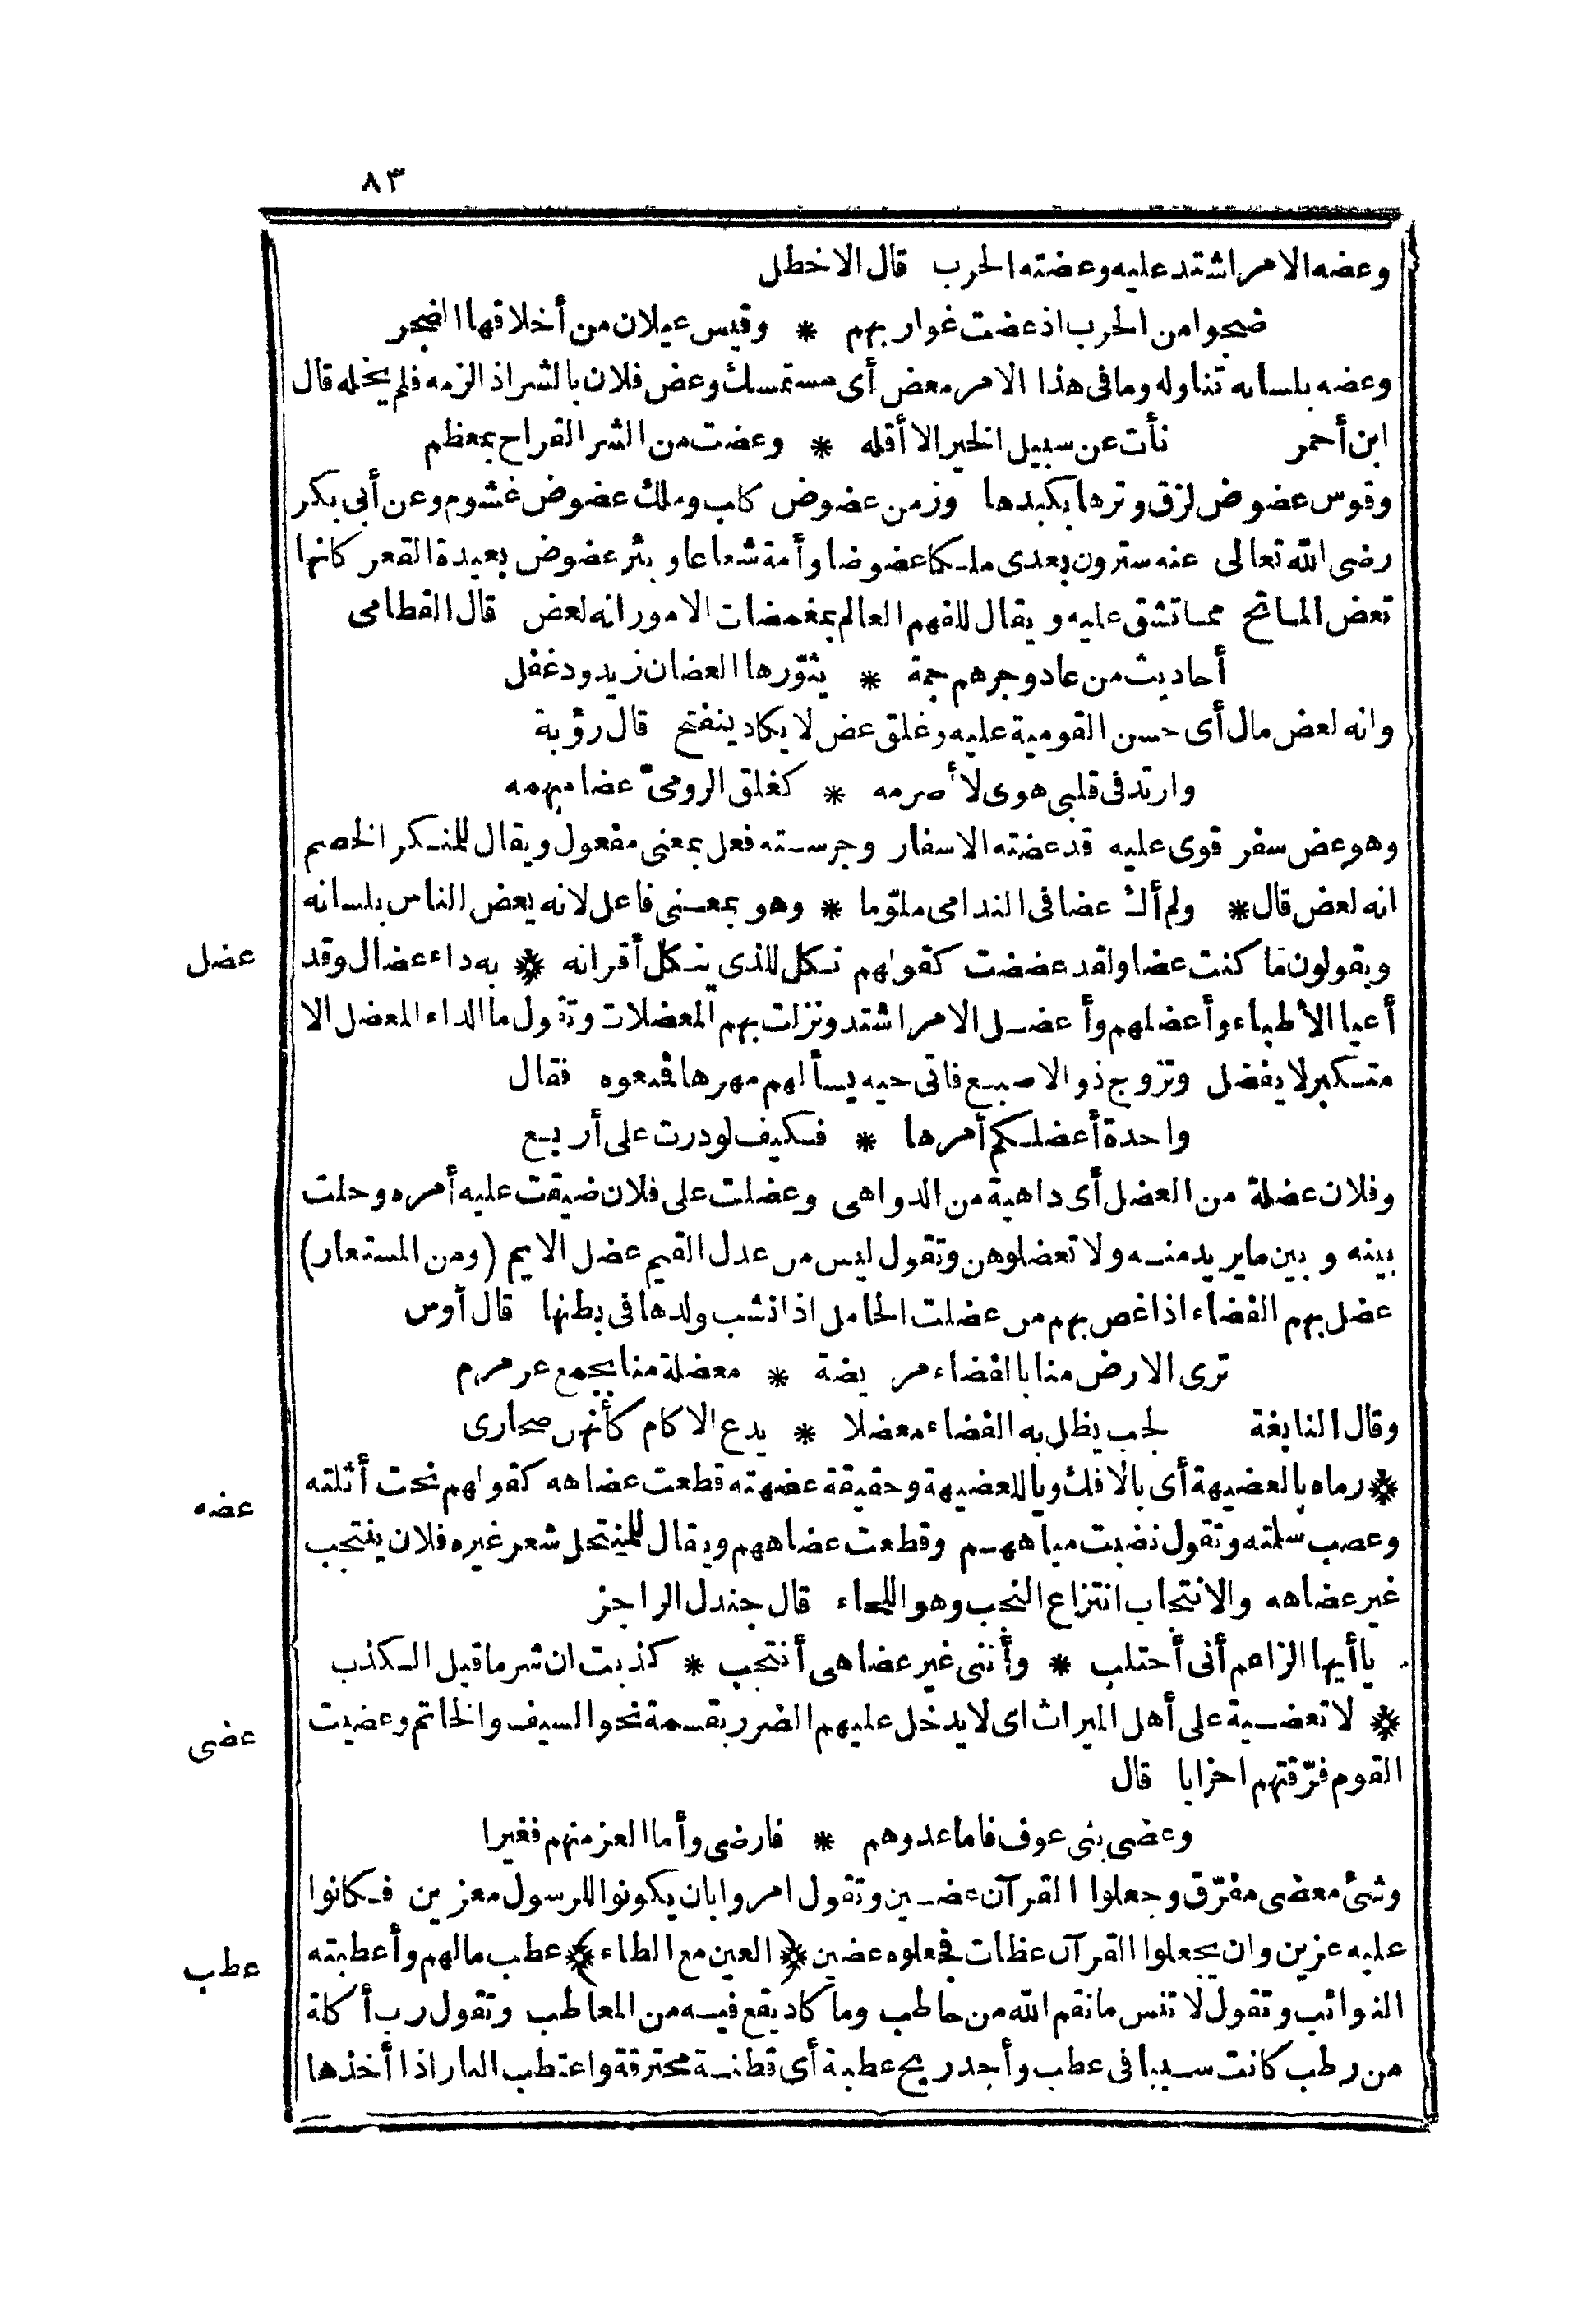 ٨٣
وعضه الامر اشتد عليه وعضته الحرب قال الاخطل
ضجوا من الحرب اذ عضت غواربهم * وقيس عيلان من أخلاقها الضجر
وعضه بلسانه تناوله وما فى هذا الامر معض أى مستمسك وعض فلان بالشر اذ الزمه فلم يخله قال
ابن أحمر نأت عن سبيل الخير الا أقله * وعضت من الشر القراح بمعظم
وقوس عضوض لزق وترها بكبدها وزمن عضوض كلب وملك عضوض غشوم وعن أبى بكر
رضى الله تعالى عنه سترون بعدى ملكا عضوضا وأمة شعاعا وبئر عضوض بعيدة القعر كانها
تعض الماتح مما تشق عليه ويقال للفهم العالم بمغمضات الامور انه لعض قال القطامى
أحاديث من عاد وجرهم جمة * يثوّرها العضان زيد ودغفل
وانه لعض مال أى حسن القومية عليه وغلق عض لا يكاد ينفتح قال رؤبة
وارتد فى قلبى هوى لا أصرمه * كغلق الرومىّ عضا مبهمه
وهو عض سفر قوى عليه قد عضته الاسفار وجرسته فعل بمعنى مفعول ويقال للمنكر الخصم
انه لعض قال * ولم أك عضا فى الندامى ملوّما * وهو بمعنى فاعل لانه يعض الناس بلسانه
ويقولون ما كنت عضا ولقد عضضت كقولهم نكل للذى ينكل أقرانه * به داء عضال وقد
عضل
أعيا الأطباء وأعضلهم وأعضل الامر اشتد ونزلت بهم المعضلات وتقول ما الداء المعضل الا
متكبر لا يفضل وتزوج ذو الاصبع فاتى حيه يسألهم مهرها فمنعوه فقال
واحدة أعضلكم أمرها * فكيف لو درت على أربع
وفلان عضلة من العضل أى داهية من الدواهى وعضلت على فلان ضيقت عليه أمره وحلت
بينه وبين ما يريد منه ولا تعضلوهن وتقول ليس من عدل القيم عضل الايم (ومن المستعار)
عضل بهم الفضاء اذا غص بهم من عضلت الحامل اذا نشب ولدها فى بطنها قال أوس
ترى الارض منا بالفضاء مريضة * معضلة منا بجمع عرمرم
وقال النابغة لجب يظل به الفضاء معضلا * يدع الاكام كأنهن صحارى
* رماه بالعضيهة أى بالافك ويا للعضيهة وحقيقة عضهته قطعت عضاهه كقولهم نحت أثلته
عضه
وعصب سلمته وتقول نضبت مياههم وقطعت عضاههم ويقال للمنتحل شعر غيره فلان ينتجب
غير عضاهه والانتجاب انتزاع النجب وهو اللحاء قال جندل الراجز
يا أيها الزاعم أنى أجتلب * وأننى غير عضاهى أنتجب * كذبت ان شر ما قيل الكذب
* لا تعضية على أهل الميراث اى لا يدخل عليهم الضرر بقسمة نحو السيف والخاتم وعضيت
عضى
القوم فرّقتهم احزابا قال
وعضى بنى عوف فاما عدوهم * فارضى وأما العز منهم فغيرا
وشئ معضى مفرّق وجعلوا القرآن عضين وتقول امروا بان يكونوا للرسول معزين فكانوا
عليه عزين وان يجعلوا القرآن عظات فجعلوه عضين ﴿العين مع الطاء﴾ * عطب مالهم وأعطبته
عطب
النوائب وتقول لا تنس ما نقم الله من حاطب وما كاد يقع فيه من المعاطب وتقول رب أكلة
من رطب كانت سببا فى عطب وأجد ريح عطبة أى قطنة محترقة واعتطب النار اذا أخذها